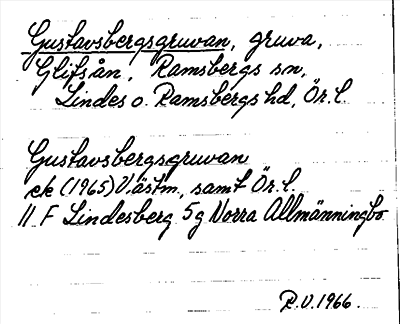 Gustavsbergsgruvan, gruva,
Glifsån, Ramsbergs sn,
Lindes o. Ramsbergs hd, Ör. l.
Gustavsbergsgruvan
ek (1965) Västm., samt Ör. l.
11 F Lindesberg 5g Norra Allmänningbo
R.V. 1966.